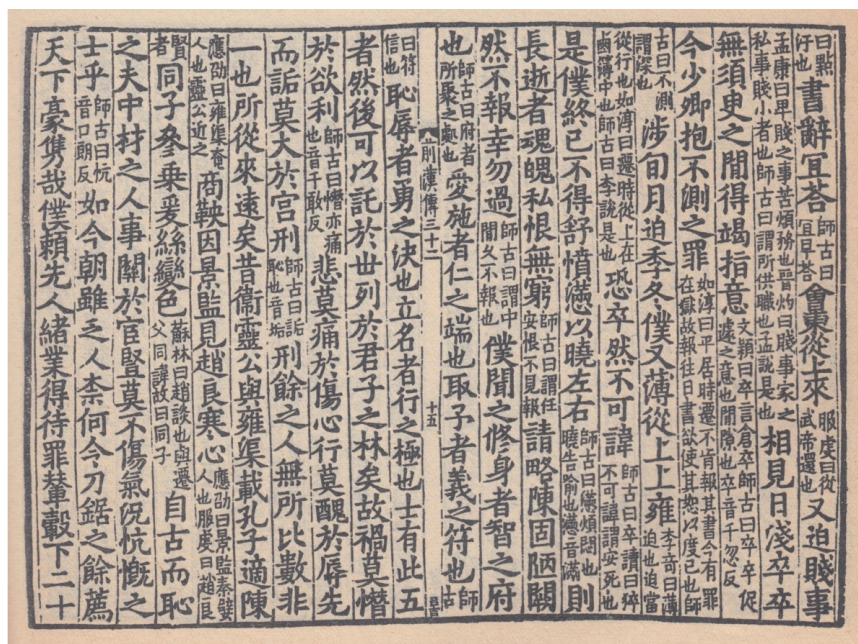 曰點汙也書辭宜荅師古曰宜早荅會東從上來服虔曰從武帝還也又迫賤事
孟康曰卑賤之事苦煩務也晉灼曰賤事家之私事賤小者也師古曰謂所供職也孟說是也相見日淺卒卒
無須臾之閒得竭指意文穎曰卒言倉卒師古曰卒卒促遽之意也閒隙也卒音千忽反
今少卿抱不測之罪如淳曰平居時遷不肯報其書今有罪在獄故報往日書欲使其恕以度已也師
古曰不測謂深也涉旬月迫季冬僕又薄從上上雍李奇曰薄迫也迫當
從行也如淳曰遷時從上在鹵簿中也師古曰李說是也恐卒然不可諱師古曰卒讀曰猝不可諱謂安死也
是僕終已不得舒憤懣以曉左右師古曰懣煩悶也曉告喻也懣音滿則
長逝者魂魄私恨無窮師古曰謂任安恨不見報請略陳固陋闕
然不報幸勿過師古曰謂中閒久不報也僕聞之修身者智之府
也師古曰府者所聚之處也愛施者仁之端也取予者義之符也師古
前漢傳三十二
十五
曰符信也恥辱者勇之決也立名者行之極也士有此五
者然後可以託於世列於君子之林矣故禍莫憯
於欲利師古曰憯亦痛也音千敢反悲莫痛於傷心行莫醜於辱先
而詬莫大於宮刑師古曰詬恥也音垢刑餘之人無所比數非
一也所從來遠矣昔衞靈公與雍渠載孔子適陳
應劭曰雍渠奄人也靈公近之商鞅因景監見趙良寒心應劭曰景監秦嬖人也服虔曰趙良
賢者同子參乘爰絲變色蘇林曰趙談也與遷父同諱故曰同子自古而恥
之夫中材之人事關於宦豎莫不傷氣況忼慨之
士乎師古曰忼音口朗反如今朝雖乏人柰何令刀鋸之餘薦
天下豪雋哉僕賴先人緒業得待罪輦轂下二十